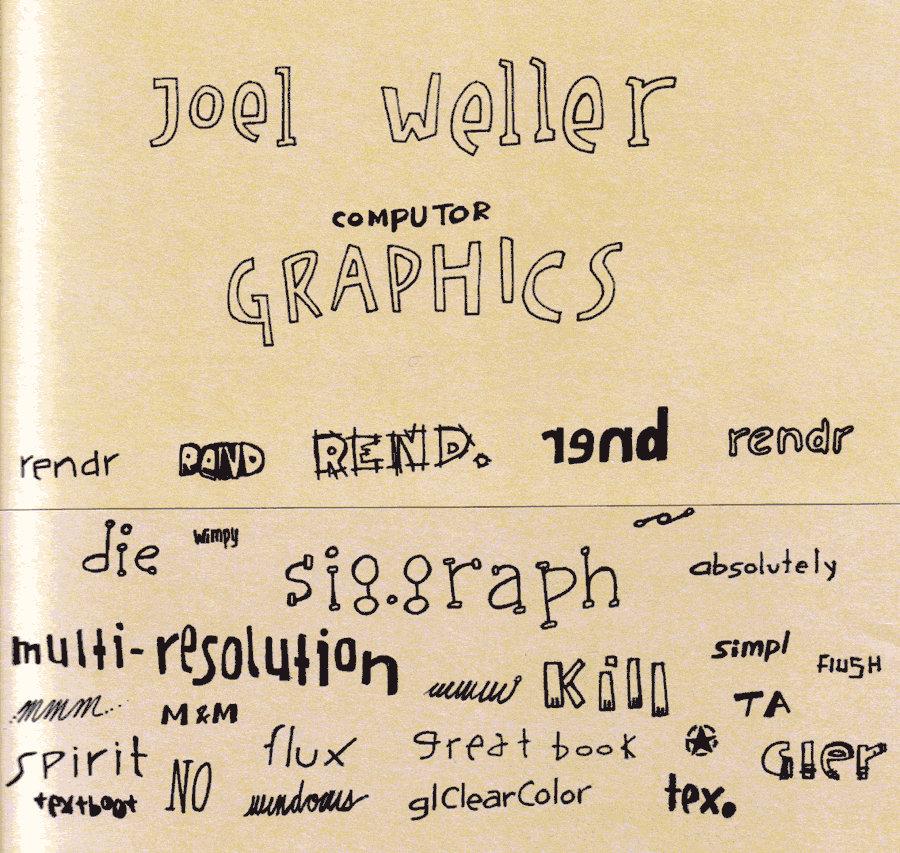 Joel Weller
COMPUTOR
GRAPHICS
rendr RAND REND. rend rendr
die wimpy sig.graph absolutely
multi-resolution Kill simpl FlUSH
mmm... M&M TA
spirit NO flux great book Gler
textboot windows glClearColor tex.